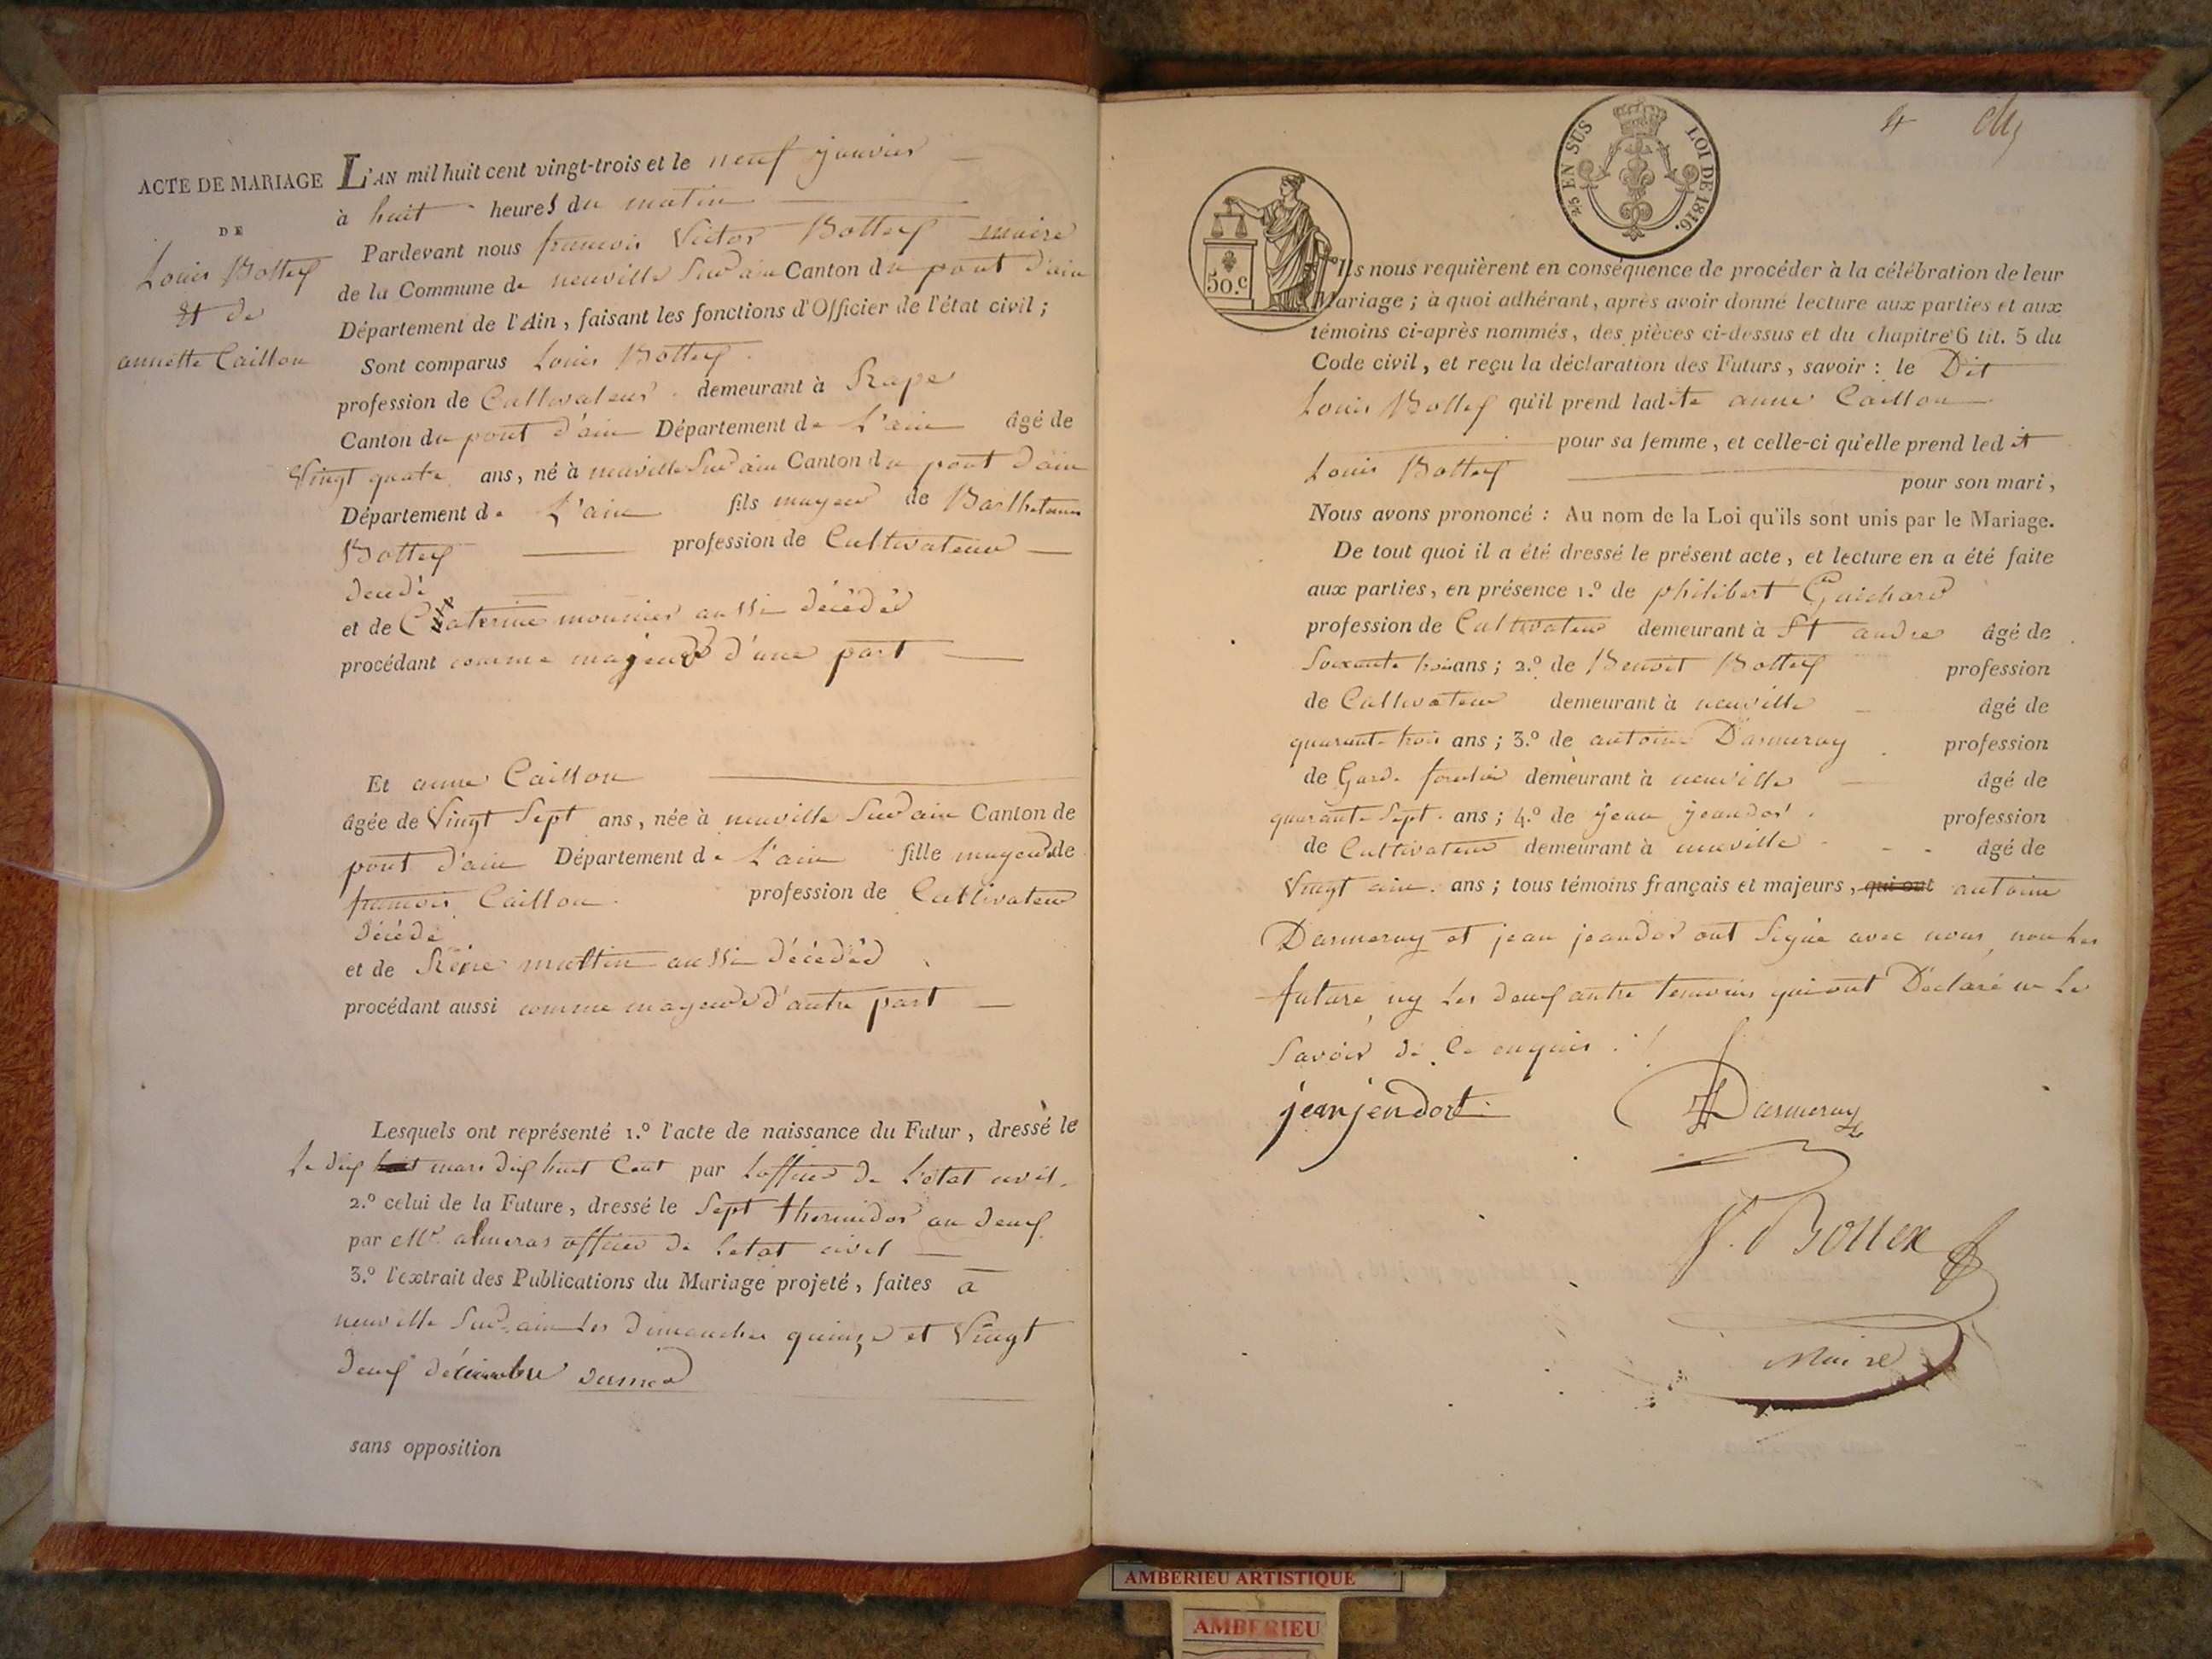 ACTE DE MARIAGE
DE
Louis Bottex
Et de
annette Caillon
L'AN mil huit cent vingt-trois et le neuf janvier
à huit heures du matin
Pardevant nous francois Victor Bottex maire
de la Commune de neuville Sur ain Canton du pont d'ain
Département de l'Ain, faisant les fonctions d'Officier de l'état civil;
Sont comparus Louis Bottex
profession de Cultivateur demeurant à Rape
Canton du pont d'ain Département de L'ain âgé de
Vingt quatre ans, né à neuville Sur ain Canton du pont d'ain
Département de L'ain fils mayeur de Barthelemi
Bottex profession de Cultivateur
décédé
et de Caterine mounier aussi décédéé
procédant comme majeur d'une part
Et anne Caillon
âgée de Vingt Sept ans, née à neuville Sur ain Canton de
pont d'ain Département de L'ain fille mayeure de
francois Caillon profession de Cultivateur
décédé
et de Réné mattin aussi décédéé
procédant aussi comme mayeure d'autre part
Lesquels ont représenté 1.º l'acte de naissance du Futur, dressé le
Le dix mars dix huit Cent par Lofficier de L'état civil
2.º celui de la Future, dressé le Sept thermidor an deux
par Mr. almeras officier de Letat civil
3.º l'extrait des Publications du Mariage projeté, faites à
neuville Sur ain Les dimanches quinze et Vingt
deux décembre dernier
sans opposition
4
2/5 EN SUS LOI DE 1816.
50.c
Ils nous requièrent en conséquence de procéder à la célébration de leur
Mariage; à quoi adhérant, après avoir donné lecture aux parties et aux
témoins ci-après nommés, des pièces ci-dessus et du chapitre 6 tit. 5 du
Code civil, et reçu la déclaration des Futurs, savoir: le Dit
Louis Bottex qu'il prend ladite anne Caillon
pour sa femme, et celle-ci qu'elle prend ledit
Louis Bottex pour son mari,
Nous avons prononcé: Au nom de la Loi qu'ils sont unis par le Mariage.
De tout quoi il a été dressé le présent acte, et lecture en a été faite
aux parties, en présence 1.º de philibert Guichard
profession de Cultivateur demeurant à St andre âgé de
Soixante trois ans; 2.º de Benoit Bottex profession
de Cultivateur demeurant à neuville âgé de
quarante trois ans; 3.º de antoine Darmeray profession
de Garde forestier demeurant à neuville âgé de
quarante Sept ans; 4.º de jean jeandor profession
de Cultivateur demeurant à neuville âgé de
Vingt cinq ans; tous témoins français et majeurs, qui ont antoine
Darmeray et jean jeandor ont Signé avec nous, non Les
future ny Les deux autre temoins qui ont Déclaré ne Le
Savoir de Ce enquis
jean jendort
Darmeray
V. Bottex
Maire
AMBERIEU ARTISTIQUE
AMBERIEU